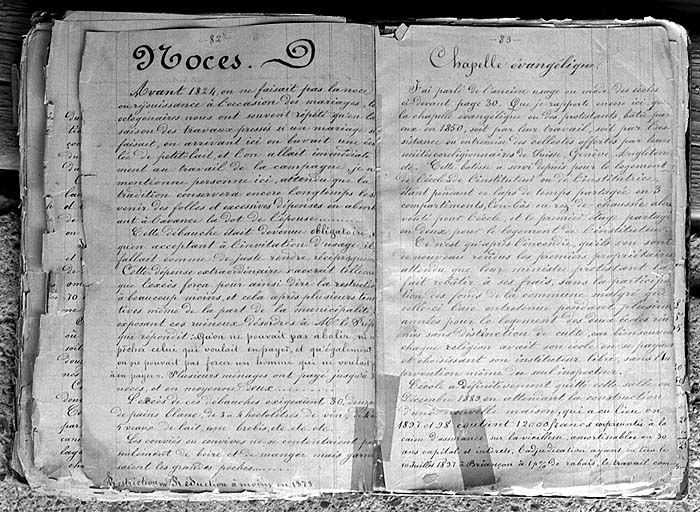 82
Noces.
Avant 1824, on ne faisait pas la noce
ou réjouissance à l'occasion des mariages, les
octogénaires nous ont souvent répété qu'en la
saison des travaux pressés si un mariage se
faisait, en arrivant ici on buvait une écu
lée de petit-lait, et l'on allait immédiate
ment au travail de la campagne, je n
mentionne personne ici, attendu que la
tradition conservera encore longtemps le
venir des folles et excessives dépenses en absorb
ant à l'avance la dot de l'épouse.
Cette débauche était devenue obligatoire,
qu'en acceptant à l'invitation d'usage, il
fallait comme de juste rendre réciproque
Cette dépense extraordinaire s'accrut telleme
que l'excès força pour ainsi dire la restricti
à beaucoup moins, et cela après plusieurs ten
tives même de la part de la municipalité,
exposant ces ruineux désordres à Mr le Préf
que répond-it: Qu'on ne pouvait pas abolir, ni
pêcher celui qui voulait en payer, et qu'également
on ne pouvait pas forcer un homme qui ne voulait
en payer. Plusieurs maisons ont payé jusqu'à
noces, et en moyenne deux
L'excès de ces débauches exigeaient 30 douz
de pains blanc, de 3 à 4 hectolitres de vin,
veaux de lait, une brebis, etc. etc. etc.
Les conviés ou convives ne se contentaient pa
seulement de boire et de manger mais garni
saient les grandes poches
Restriction ou Réduction à moins en 1873
83
Chapelle évangélique.
J'ai parlé de l'ancien usage ou mode des écoles
ci-devant page 30. Que je rapporte encore ici que
la chapelle évangélique ou des protestants bâtie par
eux en 1850, soit par leur travail, soit par l'as
sistance ou entremise des collectes offertes par leurs
coreligionnaires de Suisse, Genève, Angleterre
etc. Cette bâtisse a servi depuis pour le logement
de l'école, de l'institutrice ou de l'institutrice
étant pendant ce laps de temps, partagée en 3
compartiments, l'en-bas ou rez de chaussée alors
voûté pour l'école, et le premier étage partagé
en deux pour le logement de l'instituteur.
Ce n'est qu'après l'incendie, qu'ils s'en sont
de nouveau rendus les premiers propriétaires
attendu que leur ministre protestant l'a
fait rebâtir à ses frais, sans la participa
tion des fonds de la commune malgré que
celle-ci l'aie entretenue pendant plusieurs
années pour le logement des deux écoles réu
nies sans distinction de culte, car bien souvent
chaque religion avait son école en se payant
et choisissant son instituteur libre, sans l'a
probation même du seul inspecteur.
L'école a définitivement quitté cette salle en
Décembre 1889, en attendant la construction
d'une nouvelle maison, qui a eu lieu en
1897 et 98 coûtant 12000 francs empruntés à la
caisse d'assurance sur la vieillesse, amortissables en 30
ans capital et intérêts. L'adjudication ayant eu lieu le
10 Juillet 1897 à Briançon à 1 p% de rabais, le travail com